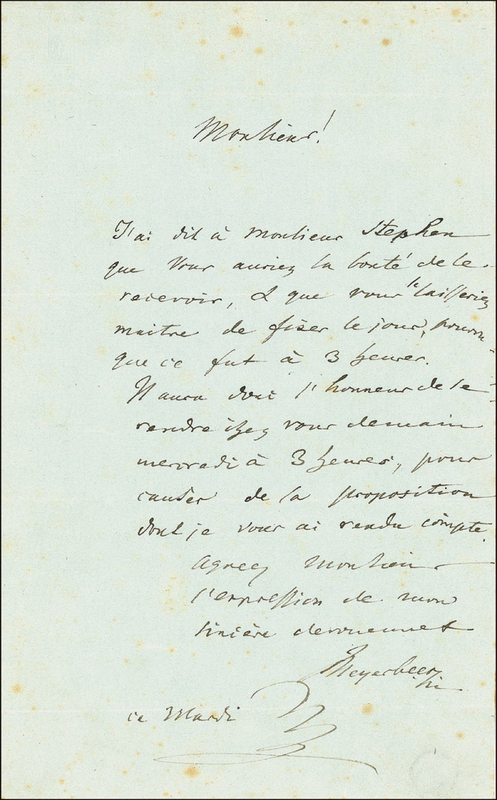 Monsieur!
J'ai dit à Monsieur Stephen
que vous auriez la bonté de le
recevoir, & que vous le laisseriez
maitre de fixer le jour, pourvu
que ce fut à 3 heures.
Il aura donc l'honneur de se
rendre chez vous demain
mercredi à 3 heures, pour
causer de la proposition
dont je vous ai rendu compte.
Agreez Monsieur
l'expression de mon
sincère devouement
Meyerbeer
ce Mardi